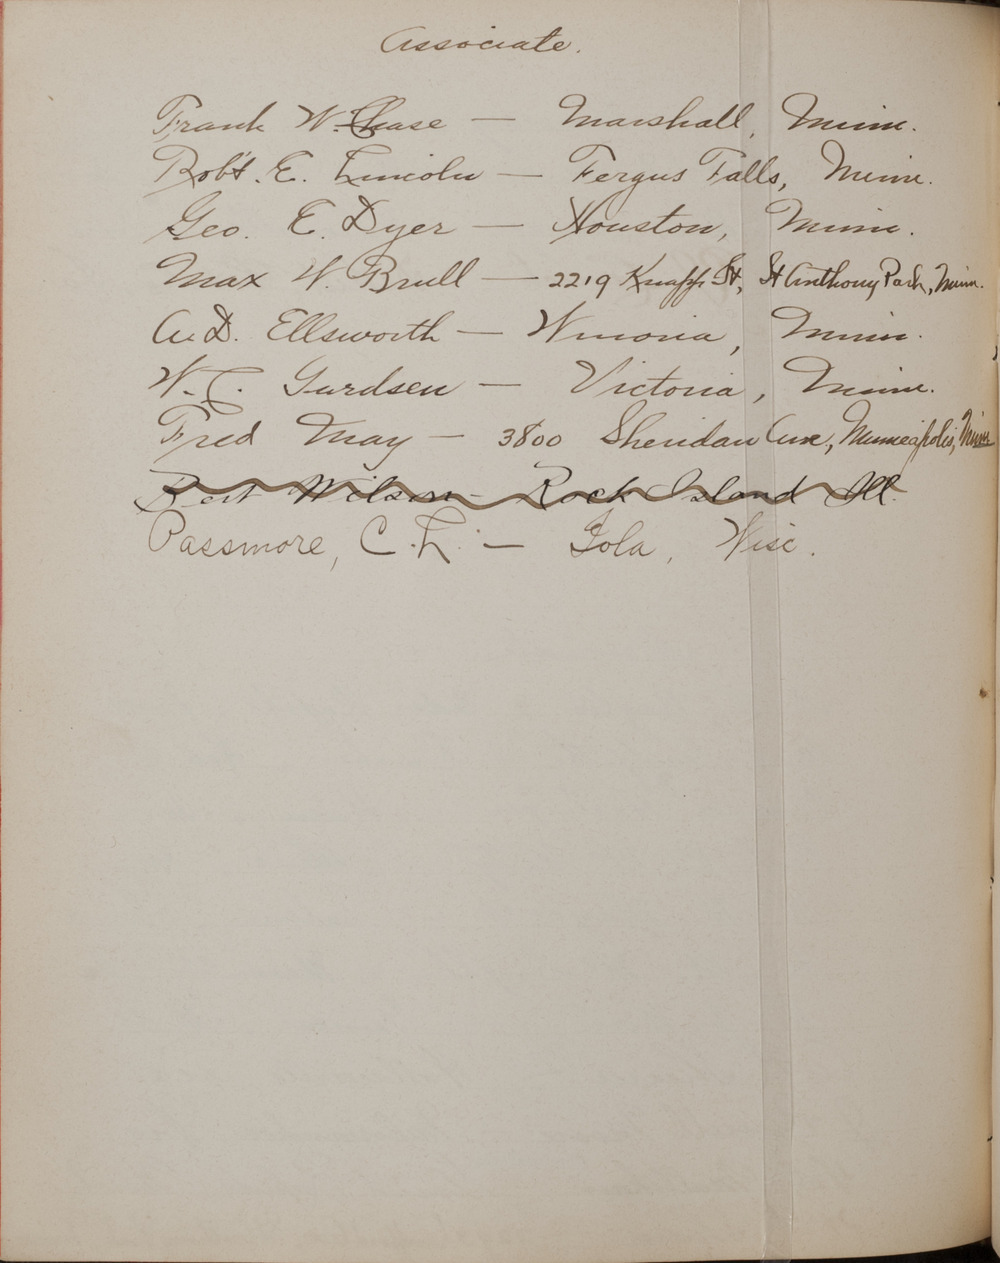 Associate.
Frank W. Chase — Marshall, Minn.
Rob't. E. Lincoln — Fergus Falls, Minn.
Geo. E. Dyer — Houston, Minn.
Max W. Brull — 2219 Knapp St, St Anthony Park, Minn.
A. D. Ellsworth — Winona, Minn.
W. C. Gurdsen — Victoria, Minn.
Fred May — 3800 Sheridan Ave, Minneapolis, Minn
Bert Wilson — Rock Island Ill.
Passmore, C. L. — Iola, Wisc.